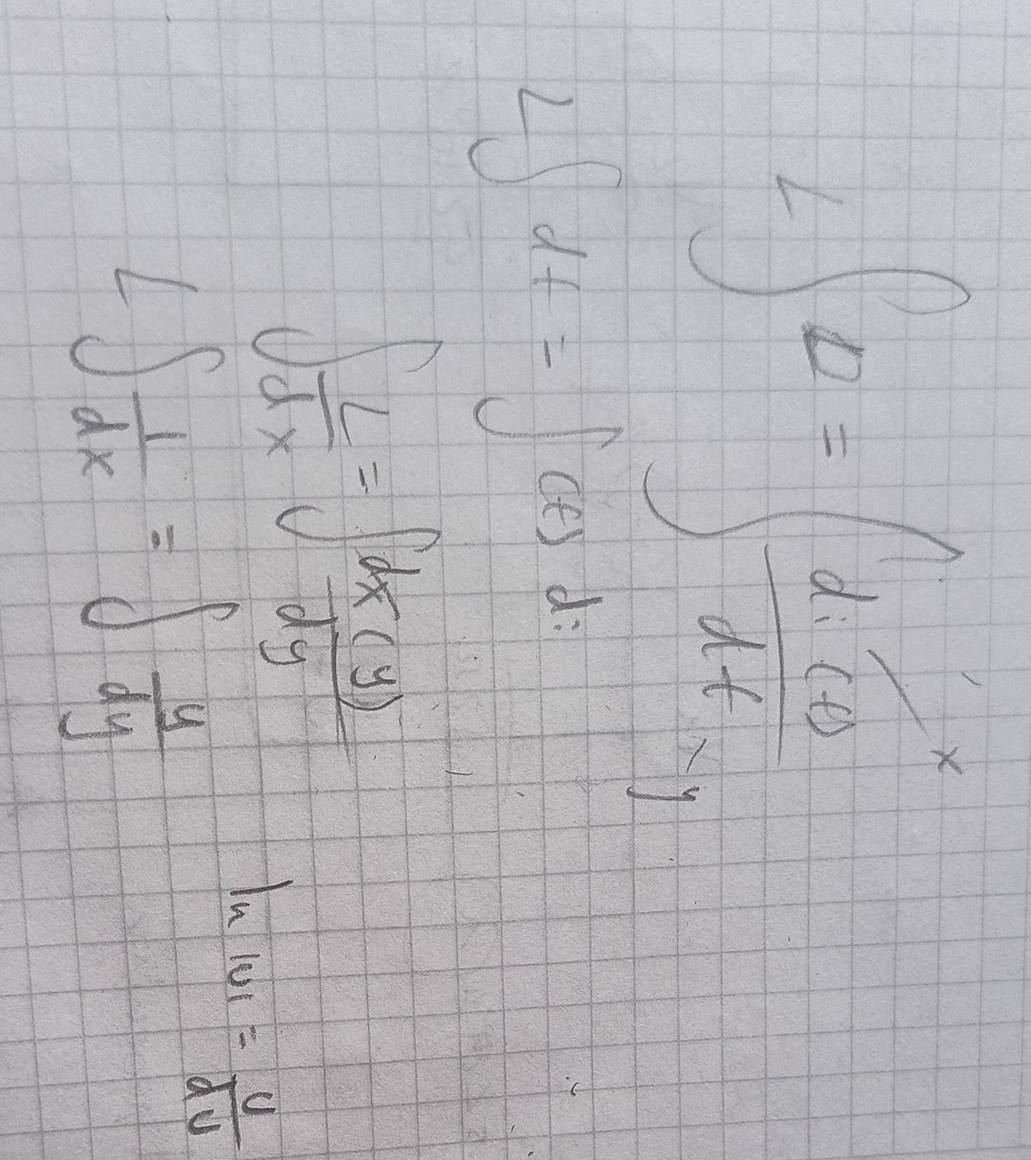 L ∫ 0 = ∫ di(t) / dt → x → y
L ∫ dt = ∫ (t) di
∫ L/dx = ∫ dx(y)/dy
L ∫ 1/dx = ∫ y/dy
ln |u| = u/du